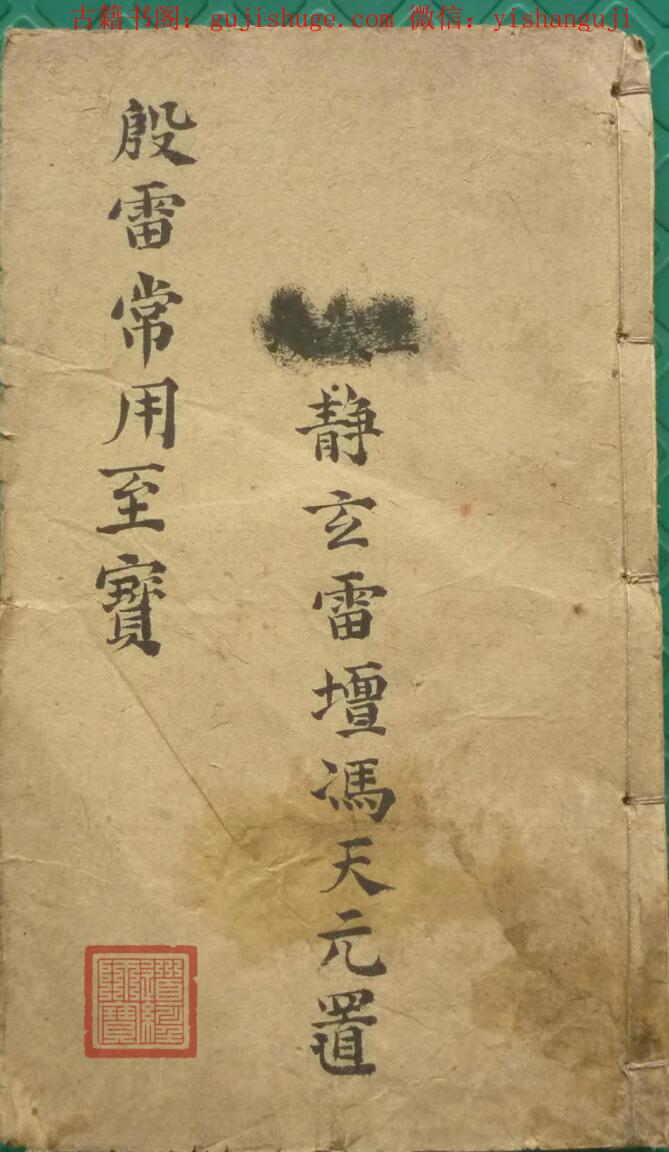 古籍书阁：gujishuge.com 微信：yishanguji
靜玄雷壇馮天元置
殷雷常用至寳